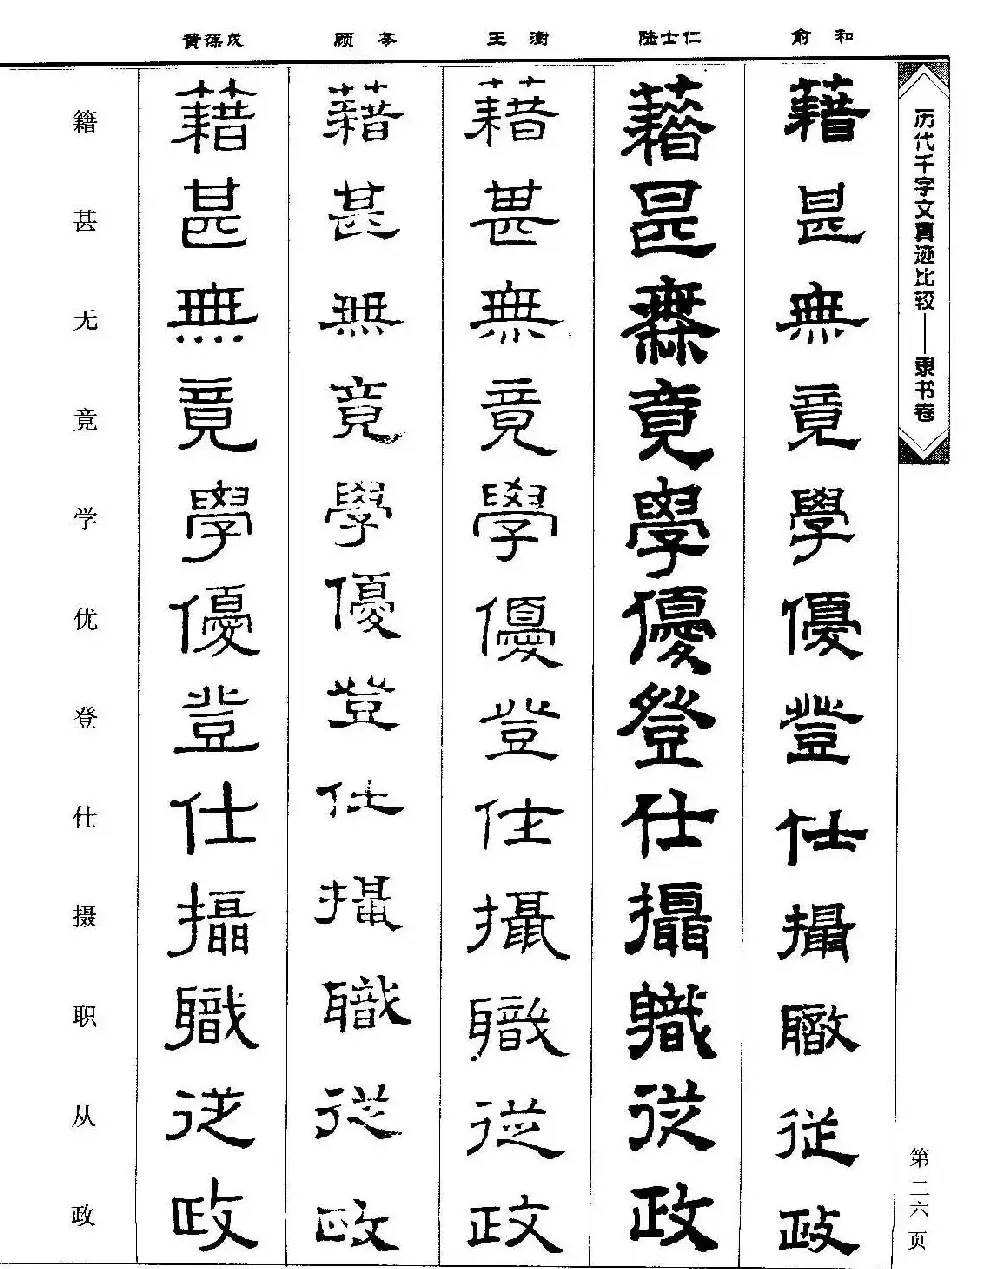 历代千字文真迹比较——隶书卷
第二六页
俞和
藉甚無竟學優登仕攝職從政
陆士仁
藉甚無竟學優登仕攝職從政
王澍
藉甚無竟學優登仕攝職從政
顾苓
藉甚無竟學優登仕攝職從政
黄葆戉
藉甚無竟學優登仕攝職從政
籍甚无竟学优登仕摄职从政